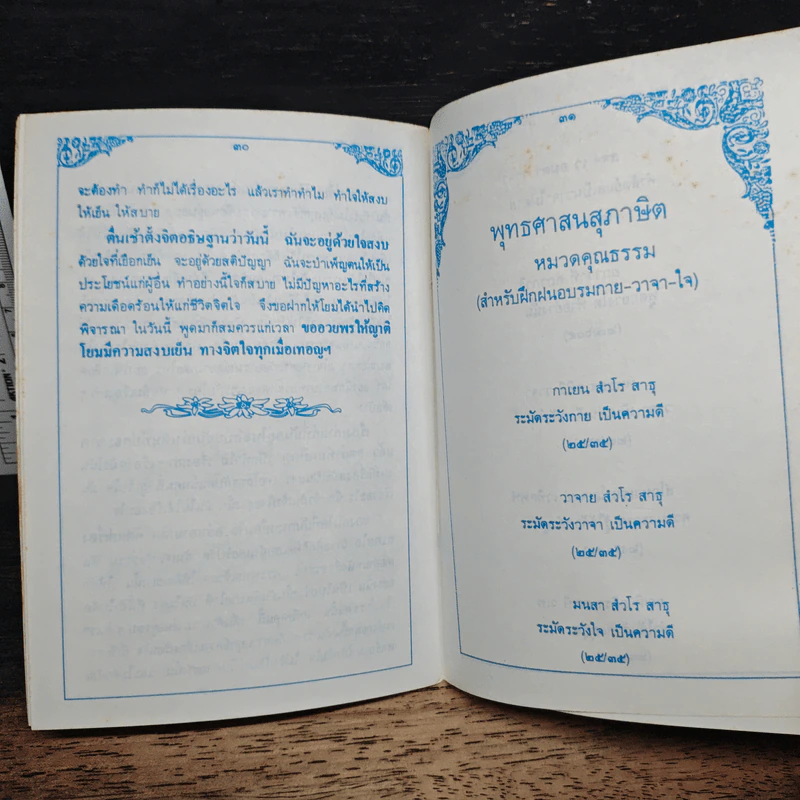 ๓๐
จะต้องทำ ทำก็ไม่ได้เรื่องอะไร แล้วเราทำทำไม ทำใจให้สงบ
ให้เย็น ให้สบาย
ตื่นเช้าตั้งจิตอธิษฐานว่าวันนี้ ฉันจะอยู่ด้วยใจสงบ
ด้วยใจที่เยือกเย็น จะอยู่ด้วยสติปัญญา ฉันจะบำเพ็ญตนให้เป็น
ประโยชน์แก่ผู้อื่น ทำอย่างนี้ใจก็สบาย ไม่มีปัญหาอะไรที่สร้าง
ความเดือดร้อนให้แก่ชีวิตจิตใจ จึงขอฝากให้โยมได้นำไปคิด
พิจารณา ในวันนี้ พูดมาก็สมควรแก่เวลา ขออวยพรให้ญาติ
โยมมีความสงบเย็น ทางจิตใจทุกเมื่อเทอญฯ
๓๑
พุทธศาสนสุภาษิต
หมวดคุณธรรม
(สำหรับฝึกฝนอบรมกาย-วาจา-ใจ)
กาเยน สํวโร สาธุ
ระมัดระวังกาย เป็นความดี
(๒๕/๓๕)
วาจาย สํวโร สาธุ
ระมัดระวังวาจา เป็นความดี
(๒๕/๓๕)
มนสา สํวโร สาธุ
ระมัดระวังใจ เป็นความดี
(๒๕/๓๕)